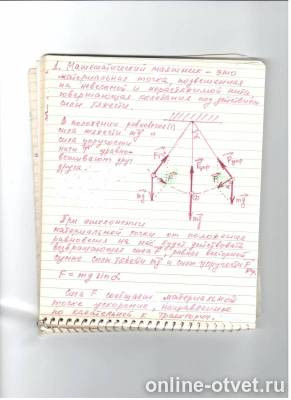 1. Математический маятник – это
материальная точка, подвешенная
на невесомой и нерастяжимой нити,
совершающая колебания под действием
силы тяжести.
В положении равновесия
сила тяжести mg и
сила упругости
нити уравно-
вешивают друг
друга.
Fупр
Fупр
Fупр
mg
mg
mg
При отклонении
материальной точки от положения
равновесия на неё будет действовать
возвращающая сила F, равная векторной
сумме силы тяжести mg и силы упругости Fупр
F = mg sin α
Сила F сообщает материальной
точке ускорение, направленное
по касательной к траектории.
online-otvet.ru